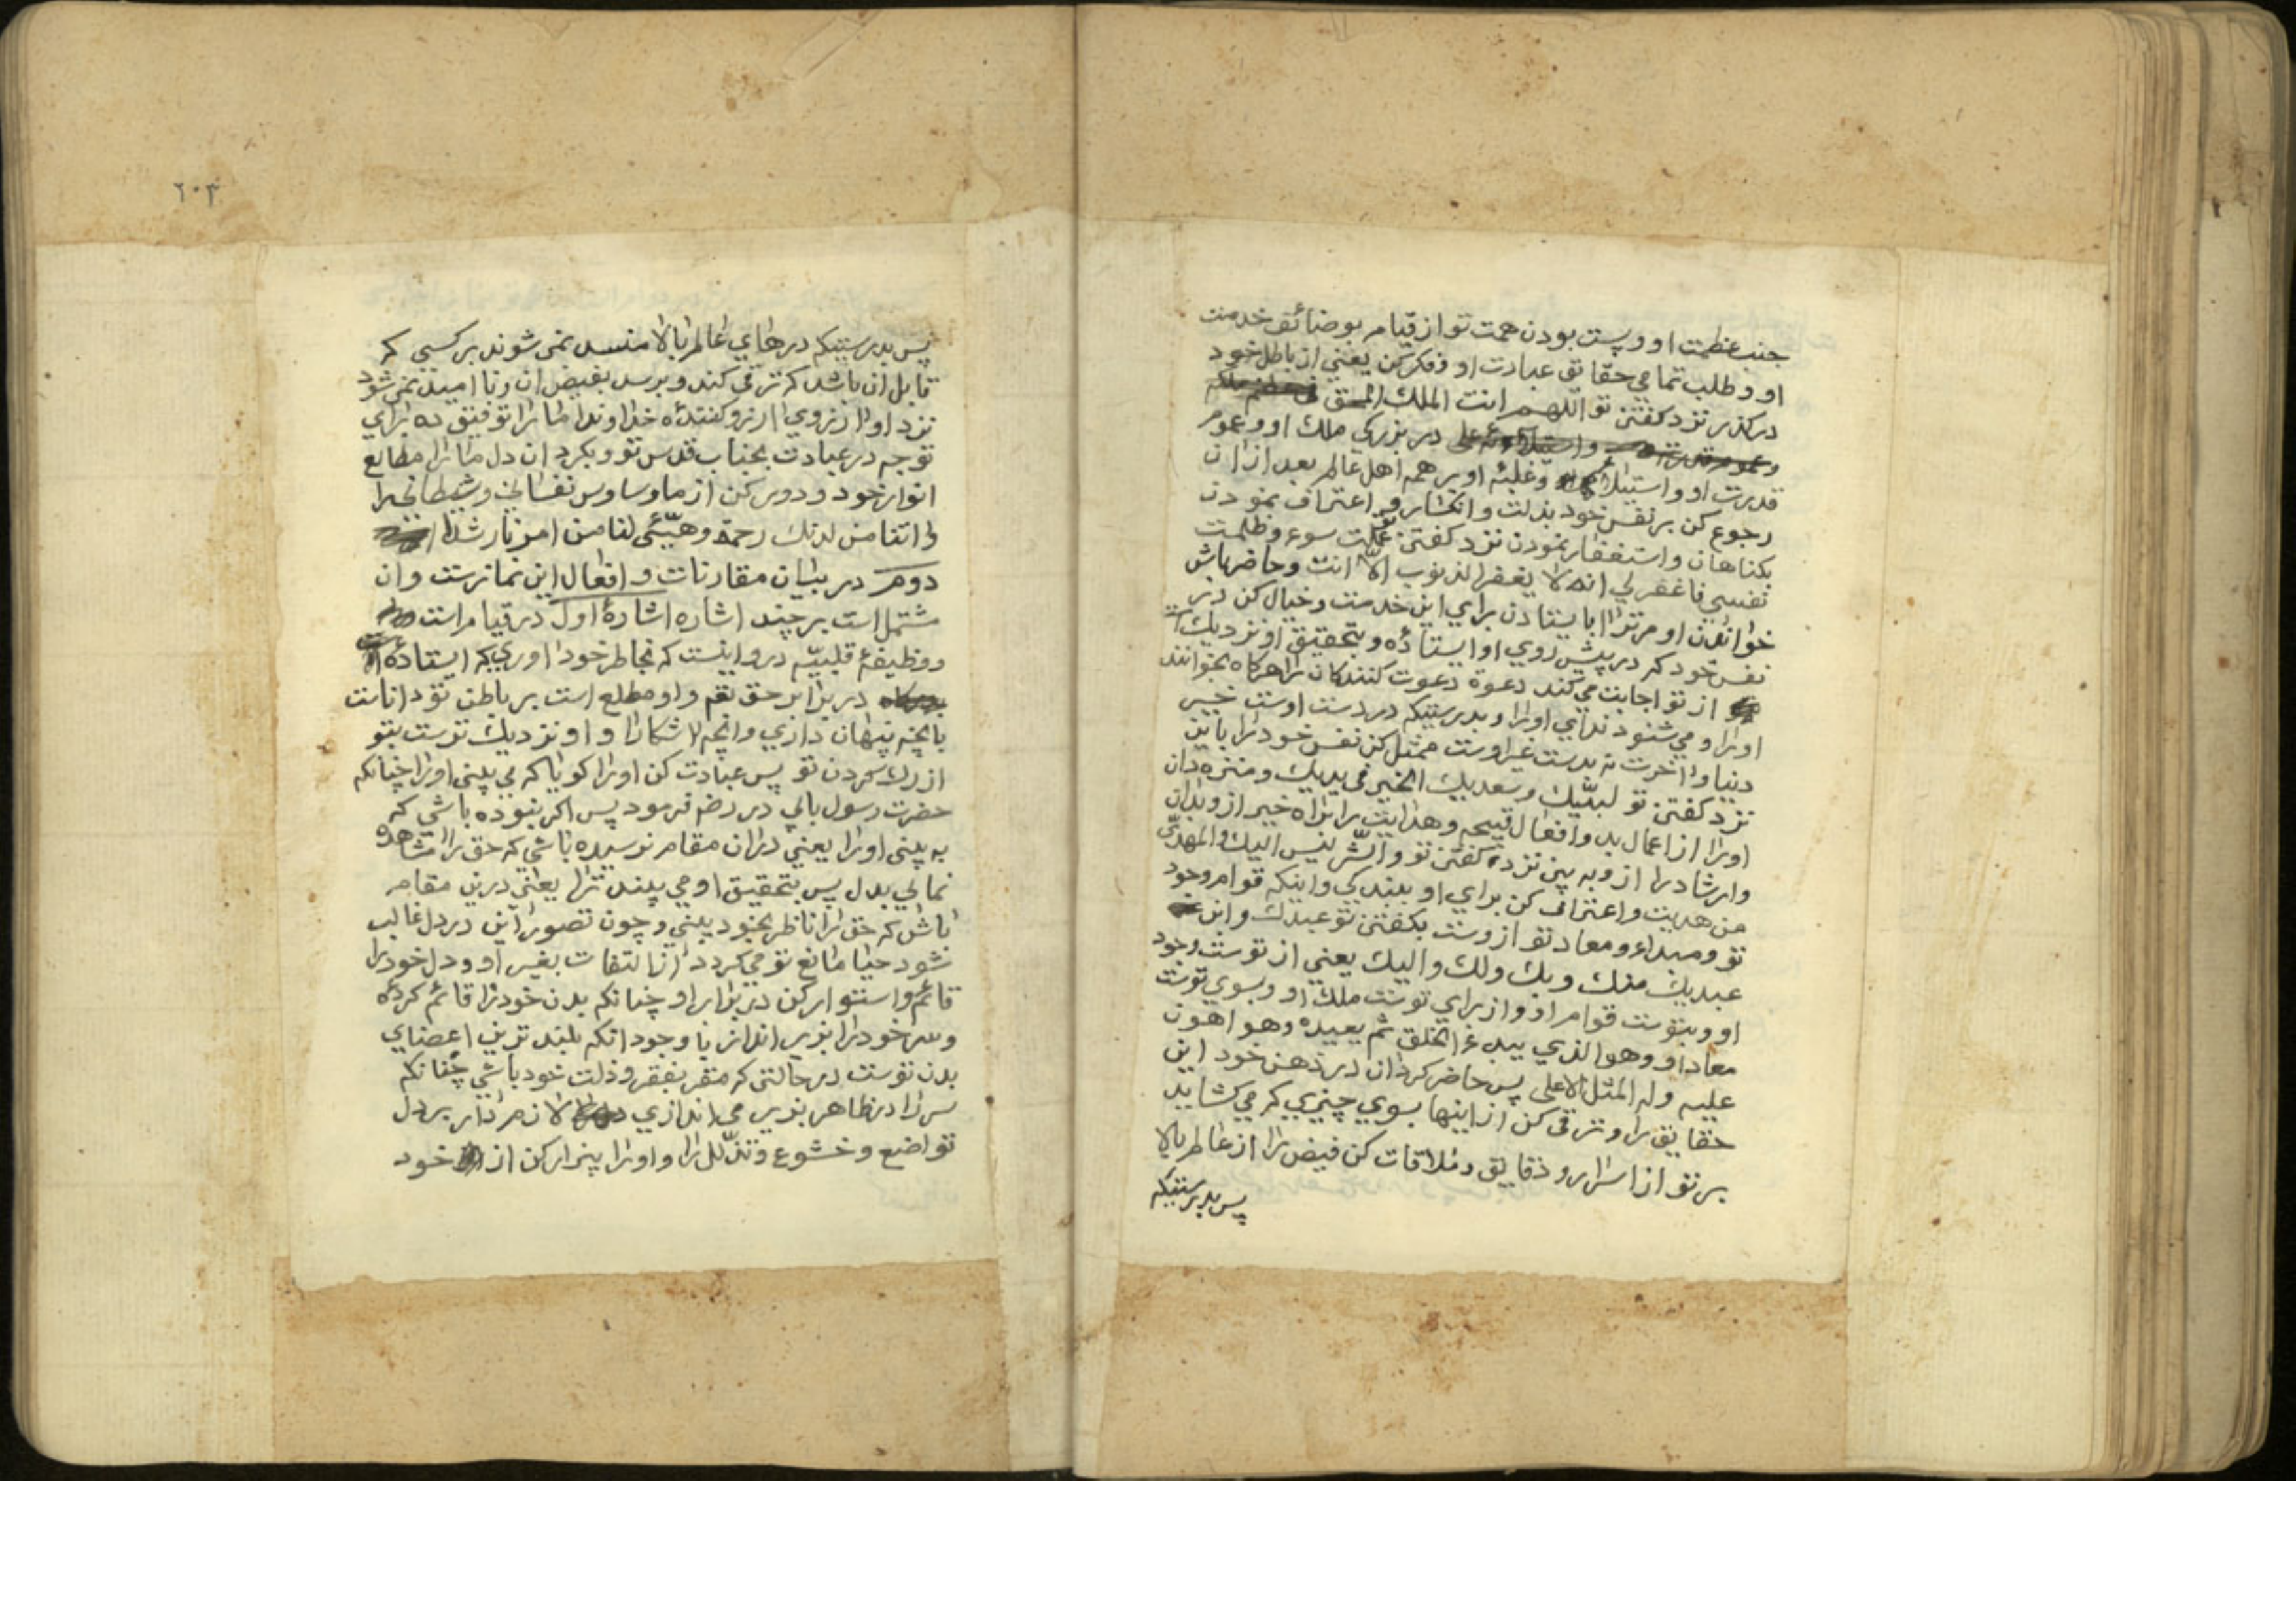 جنب عظمت او و پست بودن همت تو از قیام بوضائف خدمت
او و طلب تمامی حقایق عبادت او و فکر کن یعنی از باطل خود
در کذر نزد کفتن تو اللهم انت الملك الحق
در بزرکی ملك او و عموم
قدرت او و استیلا و غلبهٔ او بر همه اهل عالم بعد از ان
رجوع کن بر نفس خود بذلت و انکسار و اعتراف نمودن
بکناهان و استغفار نمودن نزد کفتن عملت سوء و ظلمت
نفسی فاغفر لی انه لا یغفر الذنوب الّا انت و حاضر باش
خواندن او مر ترا بایستادن برای این خدمت و خیال کن در
نفس خود که در پیش روی او ایستاده و بتحقیق او نزدیك است
از تو اجابت می کند دعوة دعوت کنندکان را هرکاه بخوانند
او را و می شنود ندای او را و بدرستیکه در دست اوست خیر
دنیا و اخرت نه بدست غیر اوست ممثل کن نفس خود را باین
نزد کفتن تو لبیّك و سعدیك الخیر فی یدیك و منزه دان
او را از اعمال بد و افعال قبیحه و هدایت را براه خیر از و بدان
و ارشاد را از و به بین نزد کفتن تو و الشّر لیس الیك و المهدیّ
من هدیت و اعتراف کن برای او ببندکی و اینکه قوام وجود
تو و مبداء و معاد تو از وست بکفتن تو عبدك و ابن
عبدیك منك و بك و لك و الیك یعنی از تو ست وجود
او و بتو ست قوام او و از برای تو ست ملك او و بسوی توست
معاد او و هو الذی یبدء الخلق ثم یعیده و هو اهون
علیه و له المثل الاعلی پس حاضر کردان در ذهن خود این
حقایق را و ترقی کن از اینها بسوی چیزی که می کشاید
بر تو از اسرار و دقایق و ملاقات کن فیض را از عالم بالا
پس بدرستیکه
٢٠٣
پس بدرستیکه درهای عالم بالا منسد نمی شوند بر کسی که
قابل ان باشد که ترقی کند و برسد بفیض ان و نا امید نمی شود
نزد او از روی ارزو کفته خداوندا ما را توفیق ده برای
توجه در عبادت بجناب قدس تو و بکردان دل ما را مطالع
انوار خود و دور کن از ما وساوس نفسانی و شیطانی را
و اتنا من لدنك رحمة و هیّئی لنا من امرنا رشدا
دوم در بیان مقارنات و افعال این نماز ست و ان
مشتمل است بر چند اشاره اشارهٔ اول در قیام است
و وظیفهٔ قلبیّه در و اینست که بخاطر خود اوری که ایستادهٔ
در برابر حق تعم و او مطلع است بر باطن تو دانا ست
بانچه پنهان داری و انچه اشکارا و او نزدیك تر ست بتو
از رك کردن تو پس عبادت کن او را کویا که می بینی او را چنانکه
حضرت رسول بابی در رضه فرمود پس اکر نبوده باشی که
به بینی او را یعنی دران مقام نرسیده باشی که حق را مشاهده
نمائی بدل پس بتحقیق او می بیند ترا یعنی درین مقام
باش که حق را ناظر بخود بینی و چون تصور این در دل غالب
شود حیا مانع تو می کردد از التفات بغیر او و دل خود را
قائم و استوار کن در برابر او چنانکه بدن خود را قائم کردهٔ
و سر خود را بزیر انداز با وجود انکه بلندترین اعضای
بدن تو ست در حالتی که مقر بفقر و ذلت خود باشی چنانکه
سر را در ظاهر بزیر می اندازی لازم دار بر دل
تواضع و خشوع و تذلّل را و او را بیزار کن از خود